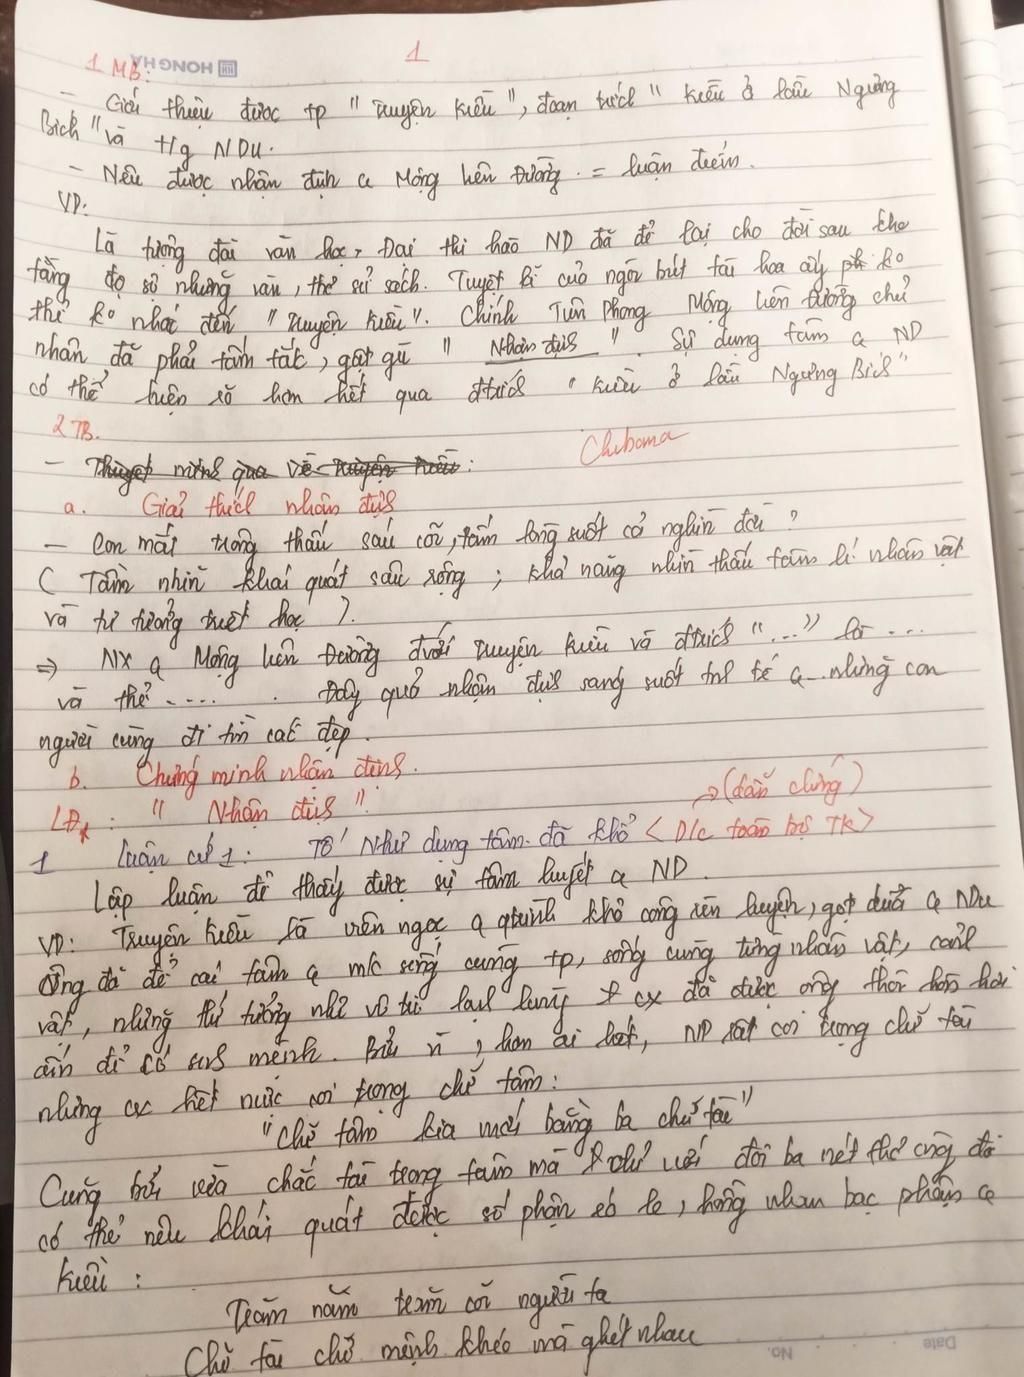 HONG HA
1
1 MB:
- Giới thiệu được tp "Truyện Kiều", đoạn trích "Kiều ở lầu Ngưng
Bích" và t/g NDu.
- Nêu được nhận định q Mộng Liên Đường. = luận điểm.
VD:
Là tượng đài văn học, Đại thi hào ND đã để lại cho đời sau kho
tàng đọ sộ những vần, thơ sử sách. Tuyệt kĩ của ngòi bút tài hoa ấy ko
thể ko nhắc đến "Truyện Kiều". Chính Tiên Phong Mộng Liên Đường chủ
nhân đã phải tấm tắc, gật gù " Nhận định ". Sự dụng tâm q ND
có thể hiện rõ hơn hết qua đtrích "Kiều ở lầu Ngưng Bích"
2 TB.
Chiboma
- Thuyết minh qua về Truyện Kiều:
a. Giải thích nhận định
- Con mắt trông thấu sáu cõi, tấm lòng suốt cả nghìn đời ?
( Tầm nhìn khái quát sâu rộng ; khả năng nhìn thấu tâm lí nhân vật
và tư tưởng triết học ).
⇒ NX q Mộng Liên Đường đvới Truyện Kiều và đtrích "..." là ...
và thể ..... . Đây quả nhận định sáng suốt tinh tế q những con
người cùng đi tìm cái đẹp.
b. Chứng minh nhận định.
→ (dẫn chứng)
LĐ : " Nhận định ".
1 Luận cứ 1: Tố Như dụng tâm đã khổ < D/c toàn bộ TK >
Lập luận để thấy được sự tâm huyết q ND.
VD: Truyện Kiều là viên ngọc q qtrình khổ công rèn luyện, gọt dũa q NDu
Ông đã để cái tâm q mk sống cùng tp, sống cùng từng nhân vật, cảnh
vật, những thứ tưởng như vô tri lạnh lùng cx đã được ông thổi hồn hơi
ấm để có sinh mệnh. Bởi vì, hơn ai hết, ND rất coi trọng chữ tài
nhưng cx hết mực coi trọng chữ tâm:
"Chữ tâm kia mới bằng ba chữ tài"
Cũng bởi vừa chắc tài trong tâm mà chỉ với đôi ba nét thơ ông đã
có thể nêu khái quát được số phận éo le, hồng nhan bạc phận q
Kiều :
Trăm năm trong cõi người ta
Chữ tài chữ mệnh khéo mà ghét nhau
No.
Date